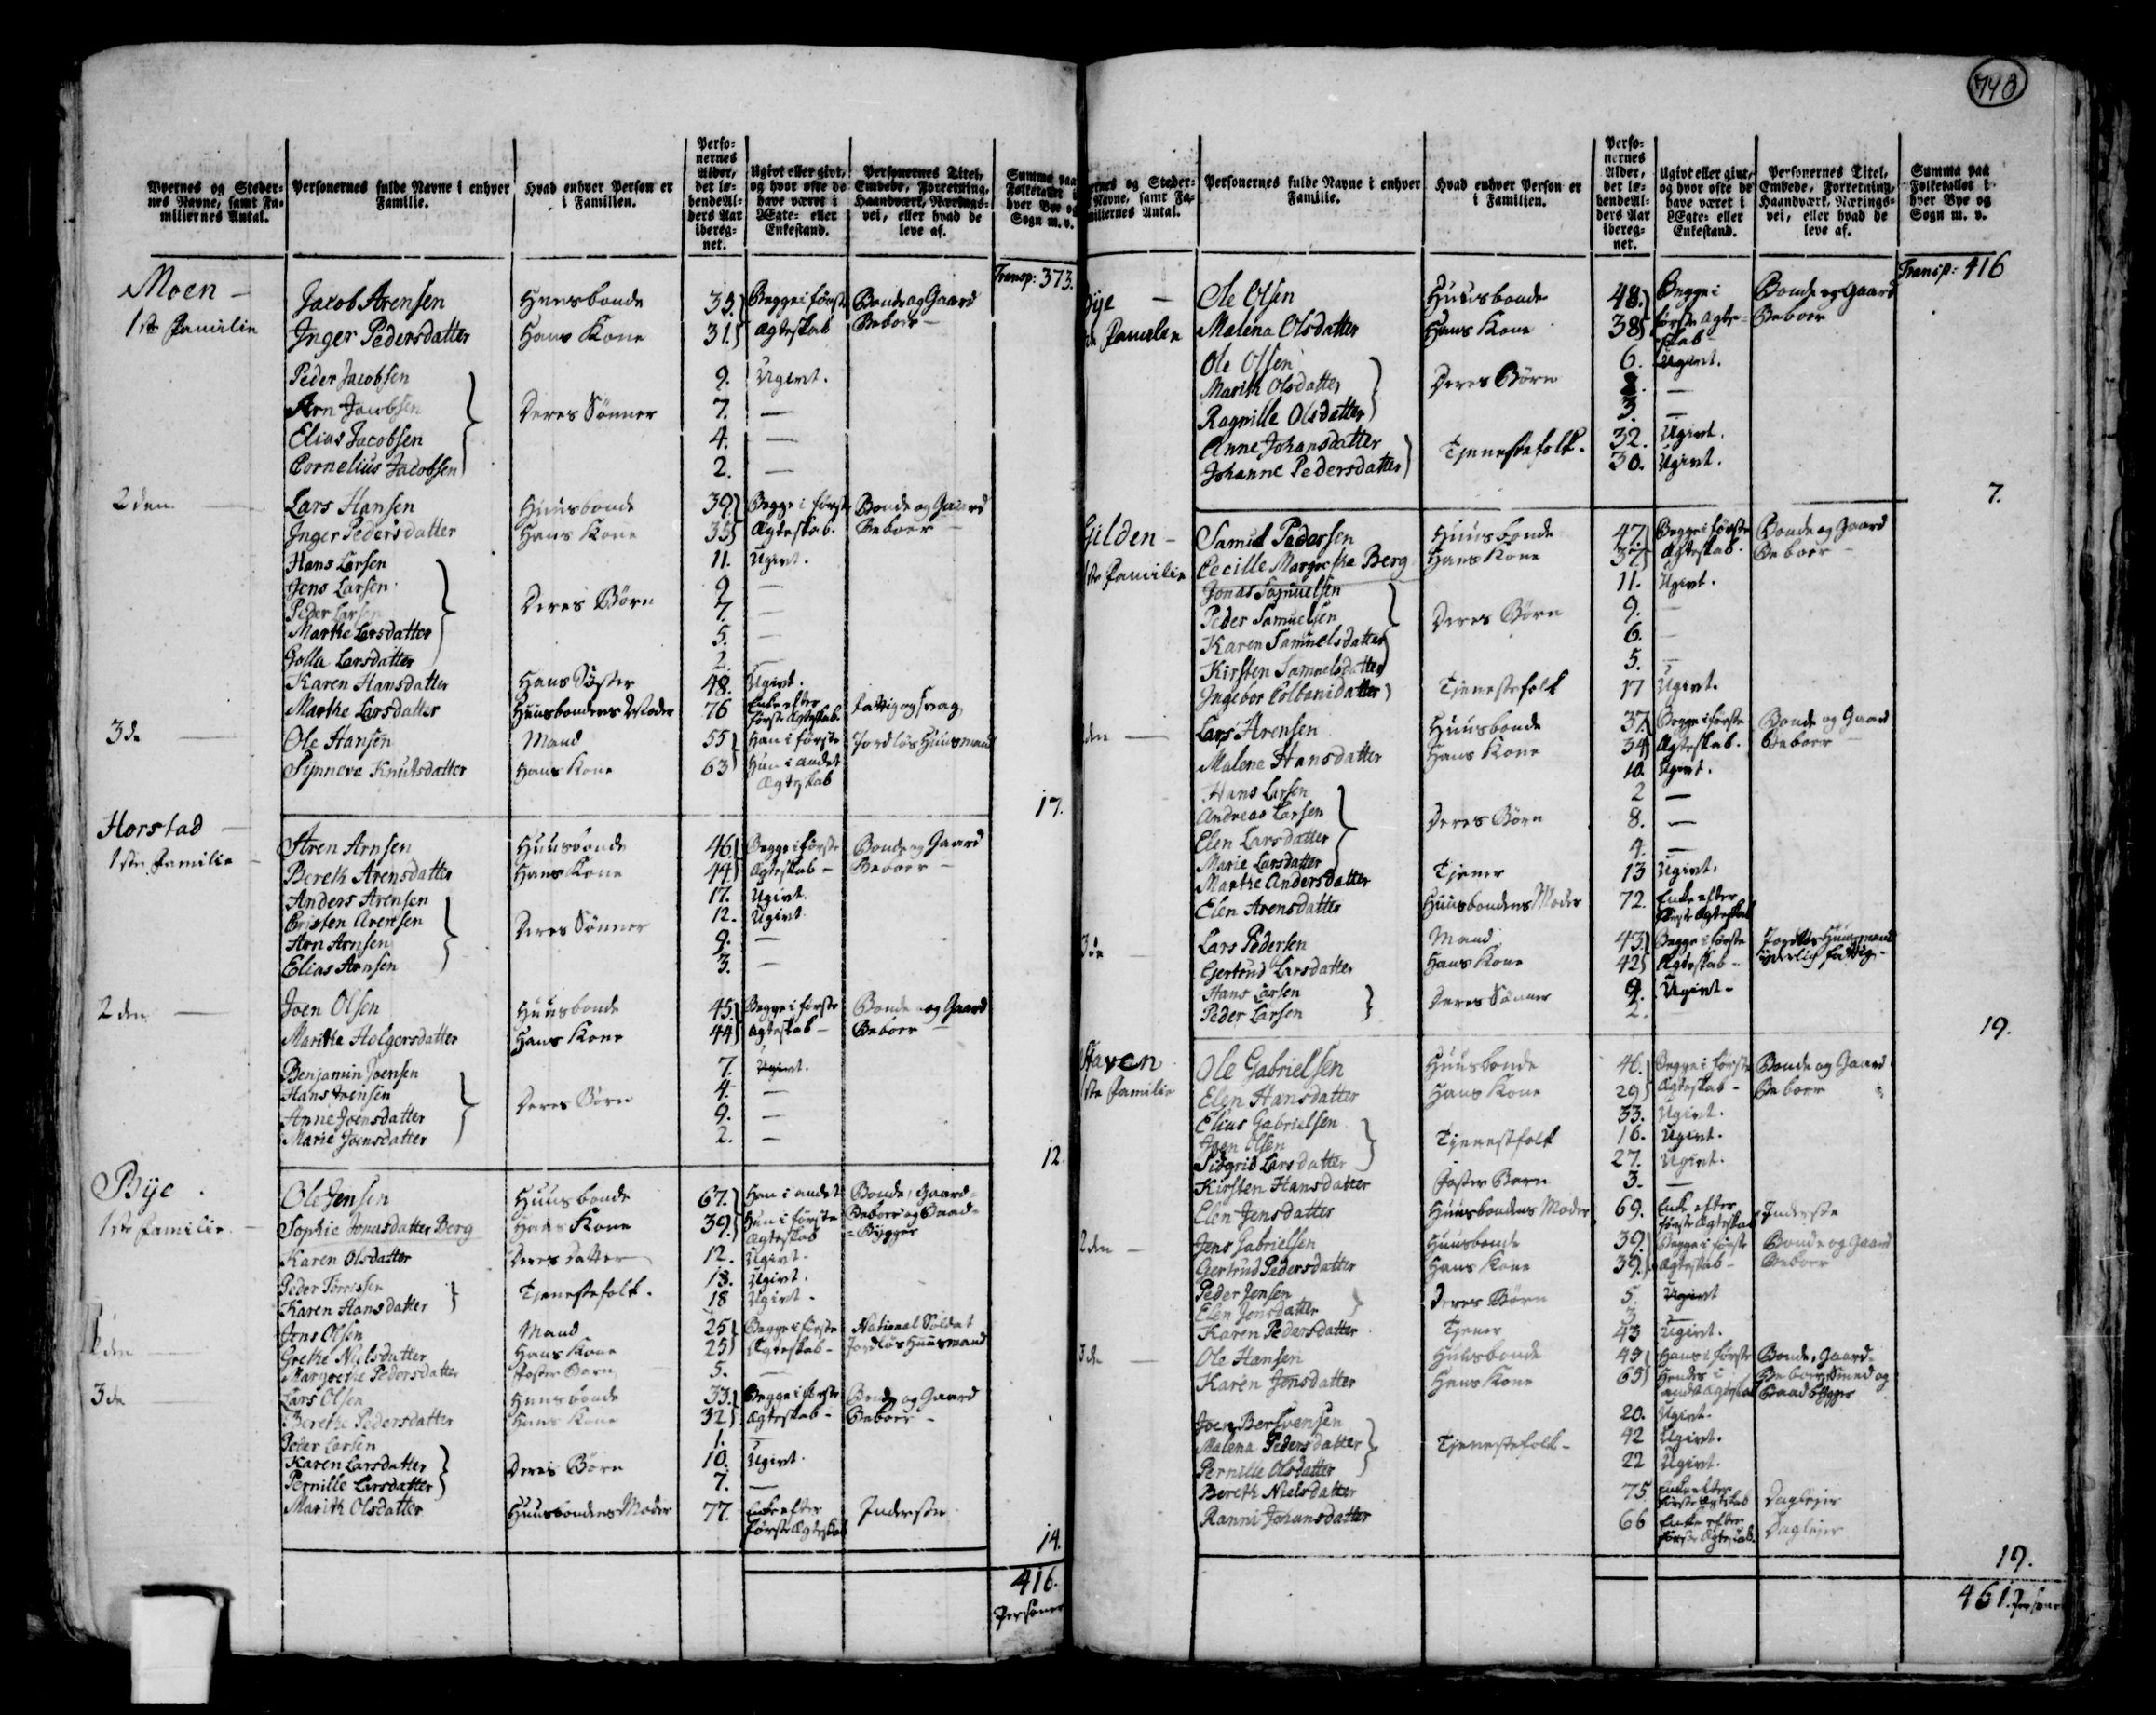 Byernes og Stedernes Navne, samt Familiernes Antal. Personernes fulde Navne i enhver Familie. Hvad enhver Person er i Familien. Personernes Alder, det løbende Alders Aar iberegnet. Ugivt eller givt, og hvor ofte de have været i Ægte- eller Enkestand. Personernes Titel, Embede, Forretning, Haandværk, Nærings-vei, eller hvad de leve af. Summa paa Folketallet i hver Bye og Sogn m. v.
Transp: 373.
Moen -
1ste Familie
Jacob Arensen Huusbonde 33. Begge i første Bonde og Gaard
Inger Pedersdatter Hans Kone 31. Ægteskab Beboer -
Peder Jacobsen 9. Ugivt.
Arn Jacobsen Deres Sønner 7. —
Elias Jacobsen 4. —
Cornelius Jacobsen 2. —
2den — Lars Hansen Huusbonde 39. Begge i første Bonde og Gaard
Inger Pedersdatter Hans Kone 35 Ægteskab. Beboer -
Hans Larsen 11. Ugivt.
Jens Larsen 9 —
Peder Larsen Deres Børn 7. —
Marthe Larsdatter 5. —
Golla Larsdatter 2. —
Karen Hansdatter Hans Søster 48. Ugivt.
Marthe Larsdatter Huusbondens Moder 76 Enke efter første Ægteskab Fattig og svag
3de — Ole Hansen Mand 55 Han i første Jordløs Huusmand
Synneve Knutsdatter Hans Kone 63 Hun i andet Ægteskab
17.
Horstad —
1ste Familie —
Aren Arnsen Huusbonde 46. Begge i første Bonde og Gaard
Bereth Arensdatter Hans Kone 44 Ægteskab - Beboer -
Anders Arensen 17. Ugivt.
Cristen Arensen Deres Sønner 12. Ugivt
Arn Arnsen 9. —
Elias Arnsen 3. —
2den — Joen Olsen Huusbonde 45. Begge i første Bonde og Gaard
Marithe Holgersdatter Hans Kone 44 Ægteskab - Beboer -
Benjamin Joensen 7. Ugivt.
Hans Joensen Deres Børn 4. —
Anne Joensdatter 9. —
Marie Joensdatter 2. —
12.
Bye.
1ste Familie. —
Ole Jensen Huusbonde 67. Han i andet Bonde, Gaard-
Sophie Jonasdatter Berg Hans Kone 39. Hun i første Ægteskab Beboer og Baad-Bygger
Karen Olsdatter Deres Datter 12. Ugivt.
Peder Tørrissen Tjenestefolk. 18. Ugivt.
Karen Hansdatter 18 Ugivt.
2den — Jens Olsen Mand 25. Begge i første National Soldat
Grethe Nielsdatter Hans Kone 25 Ægteskab - Jordløs Huusmand
Margrethe Pedersdatter Foster Barn 5. —
3de — Lars Olsen Huusbonde 33. Begge i første Bonde og Gaard
Berethe Pedersdatter Hans Kone 32 Ægteskab - Beboer -
Peder Larsen 1. —
Karen Larsdatter Deres Børn 10. Ugivt.
Pernille Larsdatter 7. —
Marith Olsdatter Huusbondens Moder 77. Enke efter første Ægteskab Inderste
14.
416.
Personer
740
ernes og Steder-nes Navne, samt Familiernes Antal. Personernes fulde Navne i enhver Familie. Hvad enhver Person er i Familien. Personernes Alder, det løbende Alders Aar iberegnet. Ugivt eller givt, og hvor ofte de have været i Ægte- eller Enkestand. Personernes Titel, Embede, Forretning, Haandværk, Nærings-vei, eller hvad de leve af. Summa paa Folketallet i hver Bye og Sogn m. v.
Transp: 416
Bye — Ole Olsen Huusbonde 48. Begge i Bonde og Gaard
Familie Malena Olsdatter Hans Kone 38 første Ægteskab Beboer
Ole Olsen 6. Ugivt.
Marith Olsdatter Deres Børn —
Ragnille Olsdatter 3. —
Anne Johansdatter Tjenestefolk. 32. Ugivt.
Johanne Pedersdatter 30. Ugivt.
7.
Gilden - Samuel Pedersen Huusbonde 47. Begge i første Bonde og Gaard
1ste Familie Cecille Margrethe Berg Hans Kone 37 Ægteskab. Beboer -
Jonas Samuelsen 11. Ugivt.
Peder Samuelsen Deres Børn 9. —
Karen Samuelsdatter 6. —
Kirsten Samuelsdatter 5. —
Ingebor Colbanidatter Tjenestefolk 17 Ugivt.
den — Lars Arensen Huusbonde 37. Begge i første Bonde og Gaard
Malene Hansdatter Hans Kone 34 Ægteskab. Beboer -
Hans Larsen 10. Ugivt.
Andreas Larsen Deres Børn 2 —
Elen Larsdatter 8. —
Marie Larsdatter 4. —
Marthe Andersdatter Tjener 13 Ugivt.
Elen Arensdatter Huusbondens Moder 72. Enke efter første Ægteskab
3de — Lars Pedersen Mand 43. Begge i første Jordløs Huusmand
Gjertrud Larsdatter Hans Kone 42 Ægteskab - yderlig fattig -
Hans Larsen Deres Sønner 9. Ugivt -
Peder Larsen 2.
19.
Staven
1ste Familie
Ole Gabrielsen Huusbonde 46. Begge i første Bonde og Gaard
Elen Hansdatter Hans Kone 29 Ægteskab - Beboer
Elias Gabrielsen 33. Ugivt.
Joen Olsen Tjenestfolk 16. Ugivt.
Sidgrid Larsdatter 27. Ugivt.
Kirsten Hansdatter Foster Barn 3. —
Elen Jensdatter Huusbondens Moder 69. Enke efter første Ægteskab Inderste
2den — Jens Gabrielsen Huusbonde 39. Begge i første Bonde og Gaard
Gertrud Pedersdatter Hans Kone 39. Ægteskab - Beboer
Peder Jensen Deres Børn 5. Ugivt
Elen Jensdatter 3. —
Karen Pedersdatter Tjener 43 Ugivt.
3de — Ole Hansen Huusbonde 49 Hans i første Bonde, Gaard-
Karen Jonsdatter Hans Kone 65 Hendes i andet Ægteskab Beboer, Smed og Baadbygger
Joen Bersvensen 20. Ugivt.
Malena Pedersdatter Tjenestefolk - 42 Ugivt.
Pernille Olsdatter 22 Ugivt.
Bereth Nielsdatter 75. Enke efter første Ægteskab Daglejer
Ranni Johansdatter 66 Enke efter første Ægteskab. Daglejer
19.
461. Personer